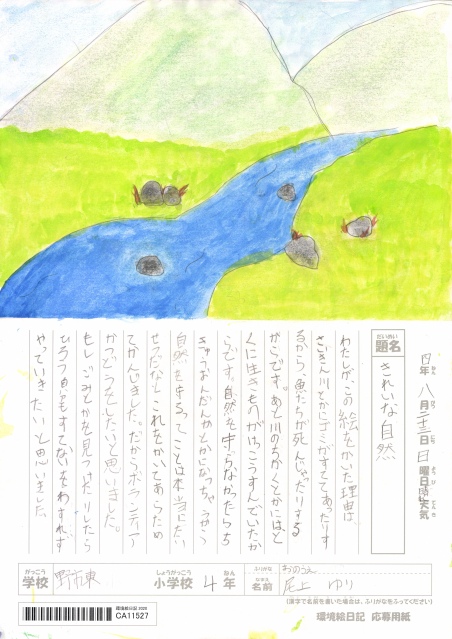 だいめい
題名
きれいな自然
年 八月二十三日 日曜日 天気
わたしが、この絵をかいた理由は、
さいきん川とかにゴミがすててあったりす
るから、魚たちが死んじゃったりする
からです。あと川のちかくとかにはと
くに生きものがけっこうすんでいたか
らです。自然を守らなかったらち
きゅうおんだんかとかになっちゃうから
自然を守るってことは本当にたい
せつだなとこれをかいてあらため
てかんじました。だからボランティア
かつどうをしたいと思いました。
もしごみとかを見つけたりしたら
ひろう もすてないをわすれず
やっていきたいと思いました。
がっこう
学校 野市東
しょうがっこう
小学校 4年
ふりがな おのうえ
なまえ
名前 尾上 ゆり
(漢字で名前を書いた場合は、ふりがなをふってください)
環境絵日記 2020
CA11527
環境絵日記 応募用紙